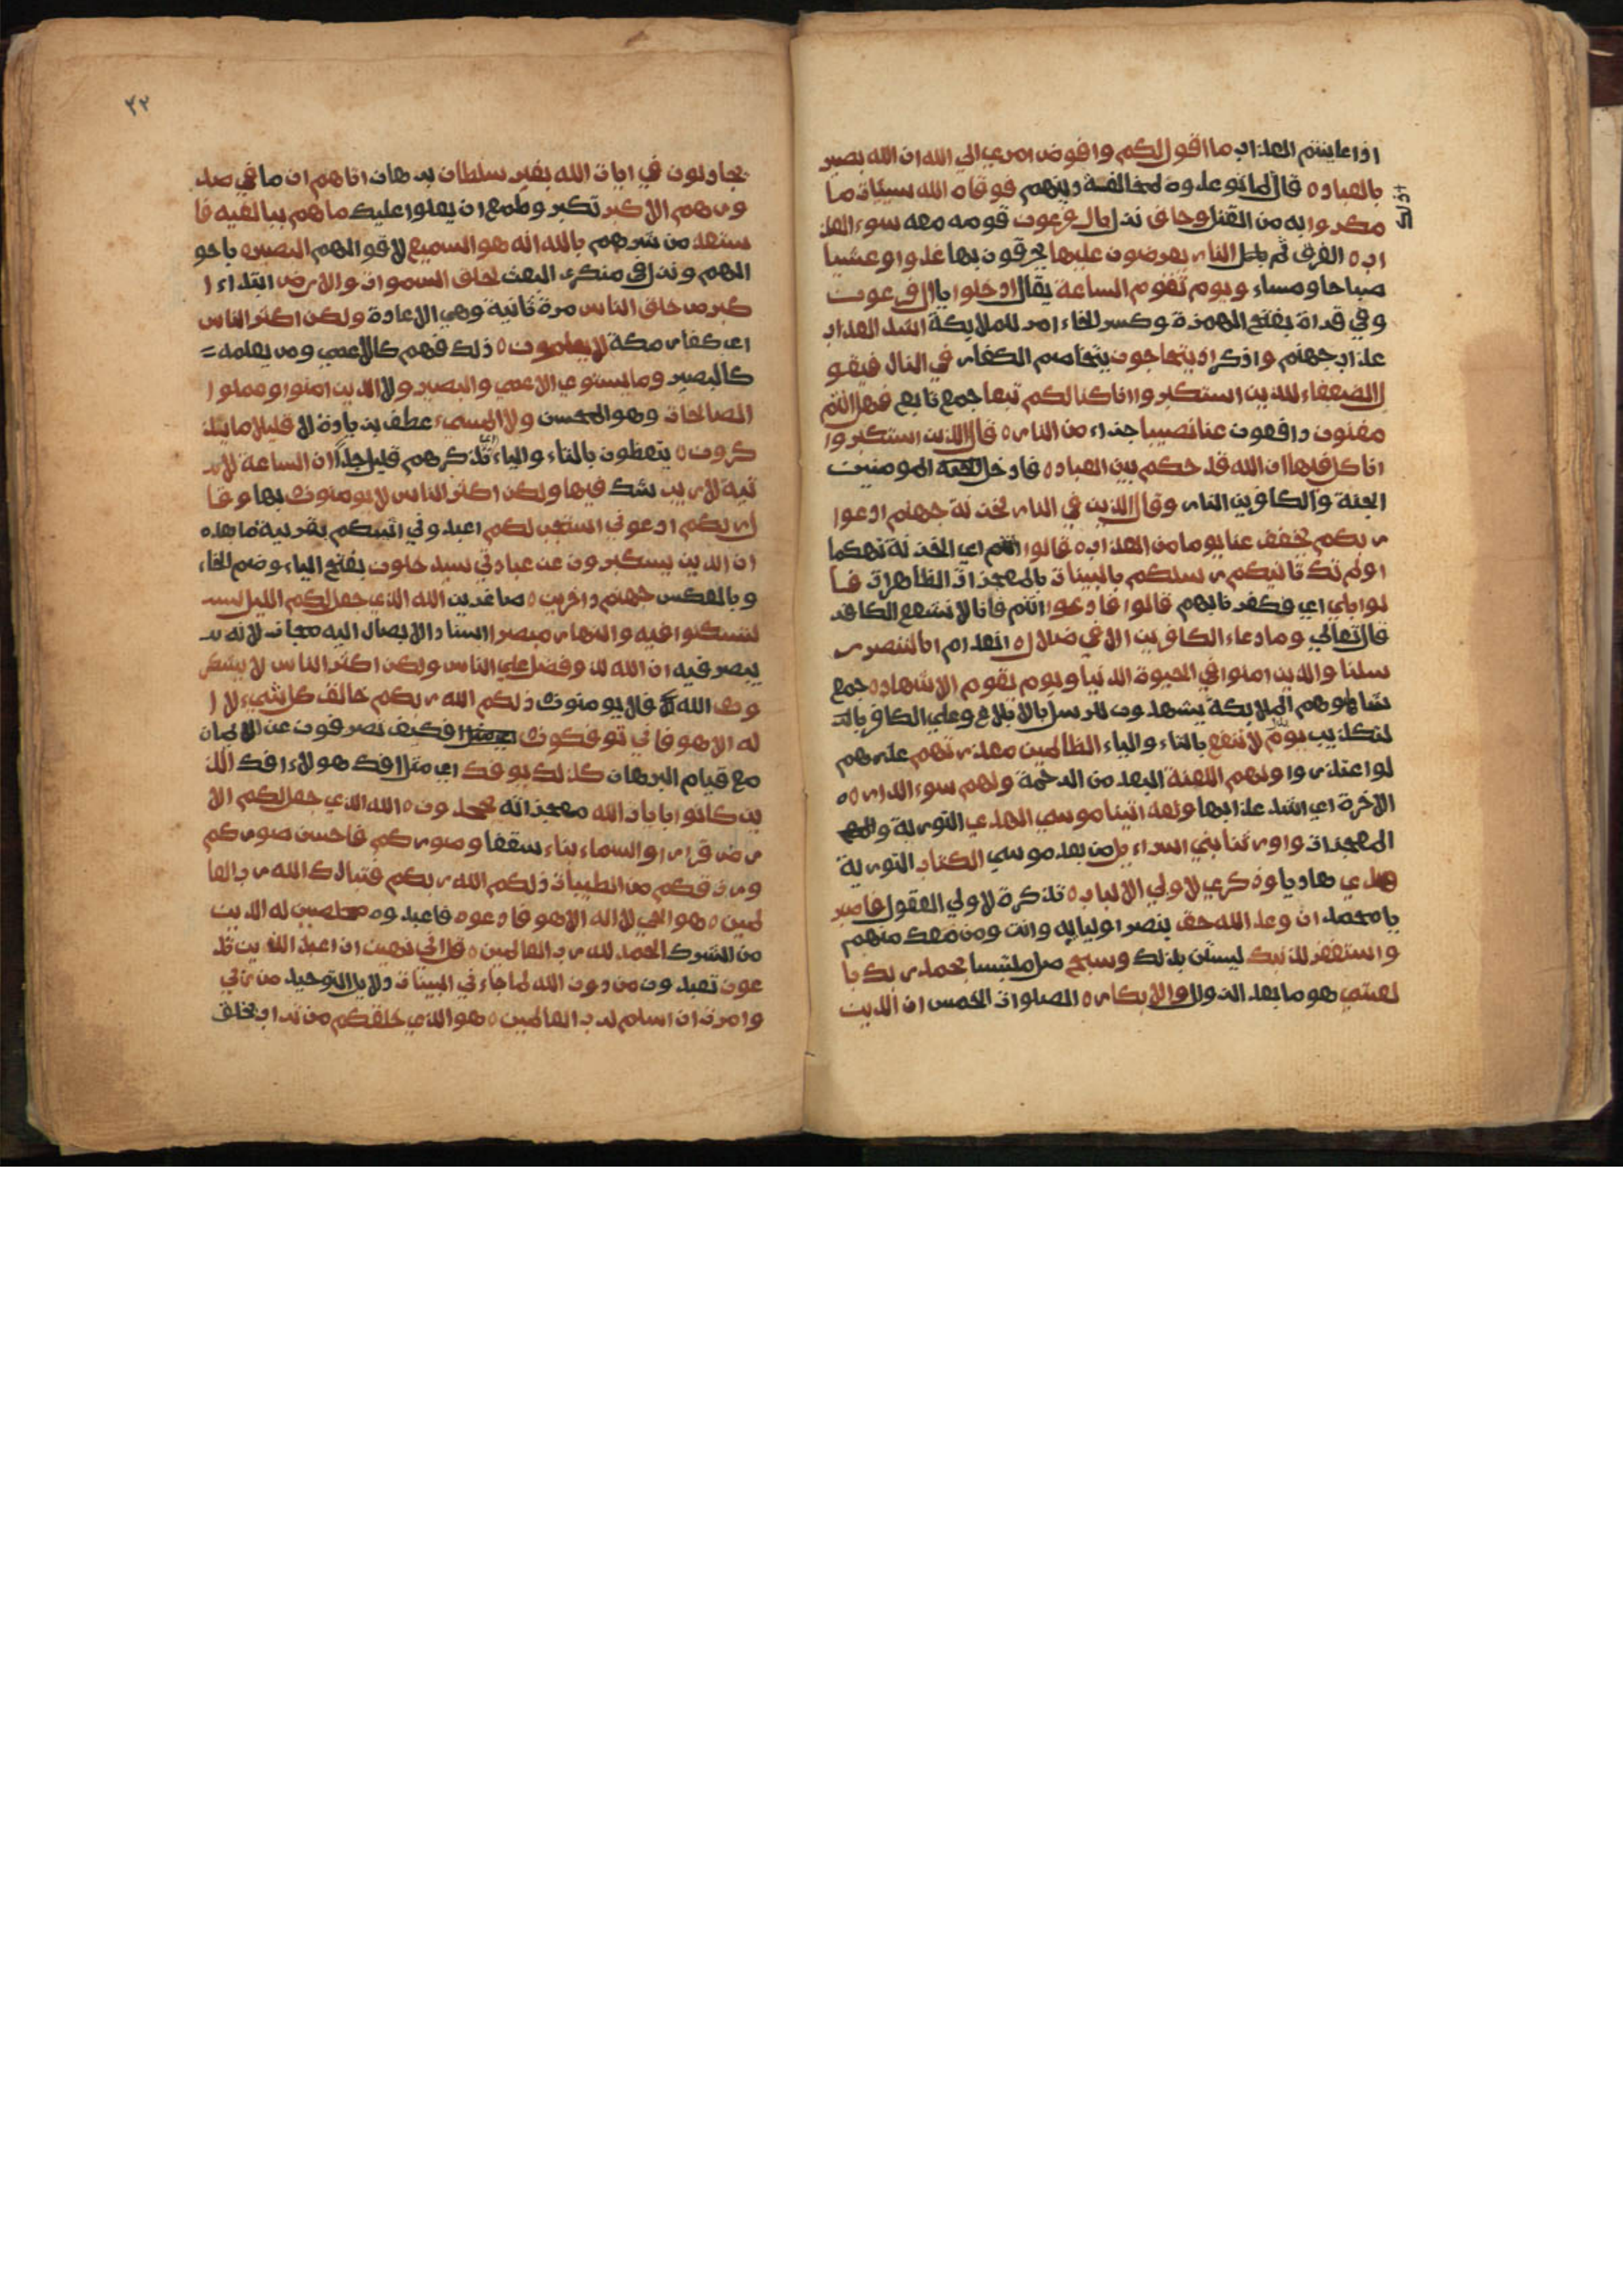 اذا عاينتم العذاب ما اقول لكم وافوض امري الي الله ان الله بصير
بالعباد ٥ قال لما توعدوه لمخالفة دينهم فوقاه الله سيئات ما
مكروا به من القتل وحاق نزل بال فرعون قومه معه سوء العذ
اب ٥ الغرق ثم بل النار يعرضون عليها يحرقون بها غدوا وعشيا
صباحا ومساء ويوم تقوم الساعة يقال ادخلوا يا ال فرعون
وفي قراة بفتح الهمزة وكسر الخاء امر للملايكة اشد العذاب
عذاب جهنم واذكر اذ يتحاجون يتخاصم الكفار في النار فيقو
ل الضعفاء للذين استكبروا انا كنا لكم تبعا جمع تابع فهل انتم
مغنون دافعون عنا نصيبا جزاء من النار ٥ قال الذين استكبروا
انا كل فيها ان الله قد حكم بين العباد ٥ فادخل المومنين
الجنة والكافرين النار وقال الذين في النار لخزنة جهنم ادعوا
ربكم يخفف عنا يوما من العذاب ٥ قالوا اي الخزنة تهكما
اولم تك تاتيكم رسلكم بالبينات بالمعجزات الظاهرات قا
لوا بلي اي فكفرنا بهم قالوا فادعوا انتم فانا لا نشفع الكافر
قال تعالي وما دعاء الكافرين الا في ضلال ٥ انعدام انا لننصر ر
سلنا والذين امنوا في الحيوة الدنيا ويوم يقوم الاشهاد ٥ جمع
شاهد وهم الملايكة يشهدون للرسل بالابلاغ وعلي الكافر بالت
لتكذيب يوم لا تنفع بالتاء والياء الظالمين معذرتهم عذرهم
لو اعتذروا ولهم اللعنة البعد من الرحمة ولهم سوء الدار ٥٥
الاخرة اي اشد عذابها ولقد اتينا موسي الهدي التورية و
المعجزات واورثنا بني اسراءيل من بعد موسي الكتاب التورية
هدي هاديا وذكري لاولي الالباب ٥ تذكرة لاولي العقول فاصبر
يا محمد ان وعد الله حق بنصر اوليايه وانت ومن معك منهم
واستغفر لذنبك ليستن بذلك وسبح صل ملتبسا بحمد ربك با
لعشي هو ما بعد الزوال والابكار ٥ الصلوات الخمس ان الذين
٣٢
يجادلون في ايات الله بغير سلطان برهان اتاهم ان ما في صد
ورهم الا كبر تكبر وطمع ان يعلوا عليك ما هم ببالغيه فا
ستعذ من شرهم بالله انه هو السميع لاقوالهم البصير ٥ باحو
الهم ونزل في منكري البعث لخلق السموات والارض ابتداء ا
كبر من خلق الناس مرة ثانية وهي الاعادة ولكن اكثر الناس
اي كفار مكة لا يعلمون ٥ ذلك فهم كالاعمي ومن يعلمه =
كالبصير وما يستوي الاعمي والبصير ولا الذين امنوا وعملوا
الصالحات وهو المحسن ولا المسيء عطف بزيادة لا قليلا ما يتذ
كرون ٥ يتعظون بالتاء والياء تذكرهم قليل جدا ان الساعة لا
تية لا ريب شك فيها ولكن اكثر الناس لا يومنون بها وقا
ل ربكم ادعوني استجب لكم اعبدوني اثبكم بقرينة ما بعده
ان الذين يستكبرون عن عبادتي سيدخلون بفتح الياء وضم الخاء
وبالعكس جهنم داخرين ٥ صاغرين الله الذي جعل لكم الليل
لتسكنوا فيه والنهار مبصرا اسناد الابصال اليه مجاز لانه
يبصر فيه ان الله لذو فضل علي الناس ولكن اكثر الناس لا يشكر
ون الله فلا يومنون ذلكم الله ربكم خالق كل شيء لا ا
له الا هو فاني توفكون فكيف تصرفون عن الايمان
مع قيام البرهان كذلك يوفك اي مثل افك هولاء افك الذ
ين كانوا بايات الله معجزاته يجحدون ٥ الله الذي جعل لكم الا
رض قرارا والسماء بناء سقفا وصوركم فاحسن صوركم
ورزقكم من الطيبات ذلكم الله ربكم فتبارك الله رب العا
لمين ٥ هو الحي لا اله الا هو فادعوه فاعبدوه مخلصين له الدين
من الشرك الحمد لله رب العالمين ٥ قل اني نهيت ان اعبد الذين تد
عون تعبدون من دون الله لما جاءني البينات دلايل التوحيد من ربي
وامرت ان اسلم لرب العالمين ٥ هو الذي خلقكم من تراب بخلق